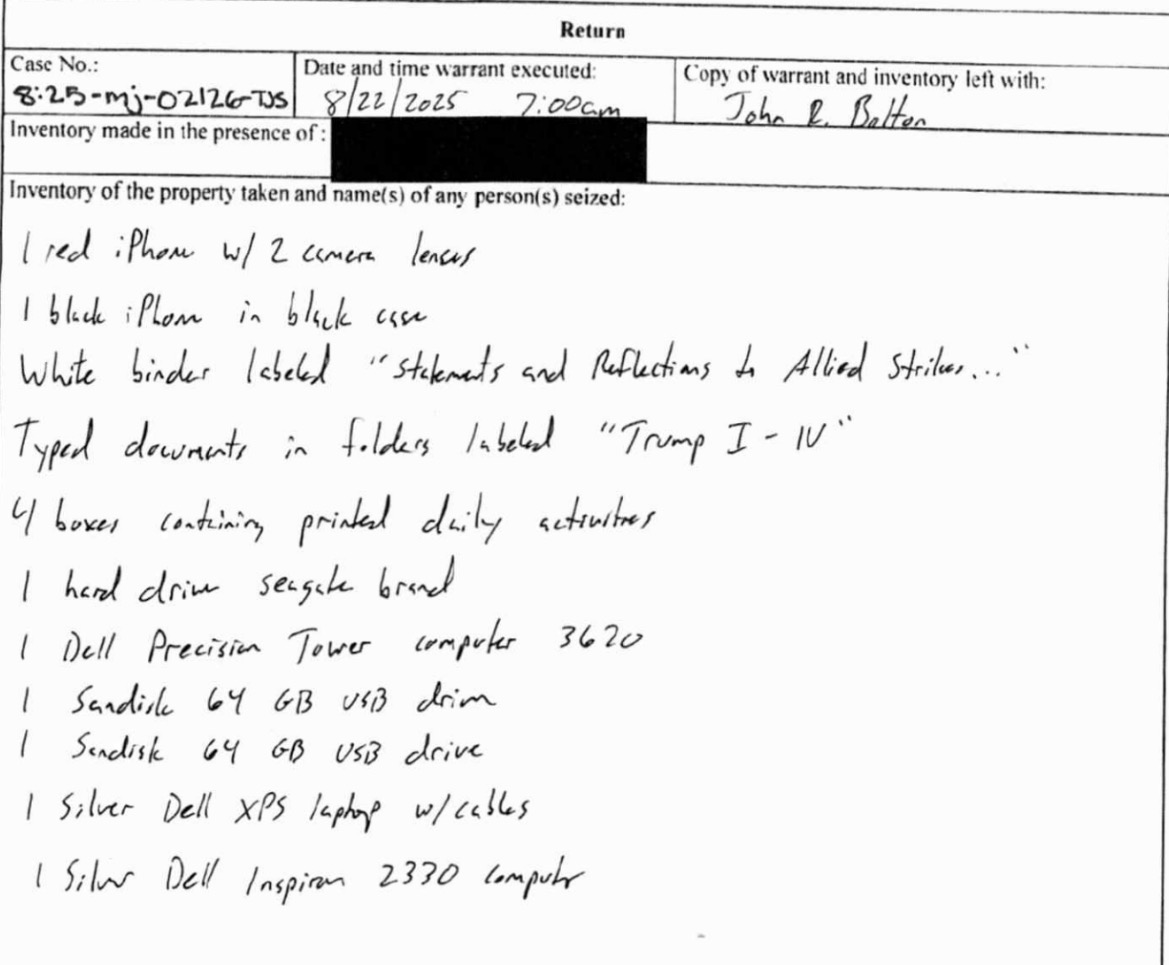 Return
Case No.:
8:25-mj-02126-TJS
Date and time warrant executed:
8/22/2025 7:00am
Copy of warrant and inventory left with:
John R. Bolton
Inventory made in the presence of :
Inventory of the property taken and name(s) of any person(s) seized:
1 red iPhone w/ 2 camera lenses
1 black iPhone in black case
White binder labeled "Statements and Reflections to Allied Strikes..."
Typed documents in folders labeled "Trump I - IV"
4 boxes containing printed daily activities
1 hard drive seagate brand
1 Dell Precision Tower computer 3620
1 Sandisk 64 GB USB drive
1 Sandisk 64 GB USB drive
1 Silver Dell XPS laptop w/cables
1 Silver Dell Inspiron 2330 computer